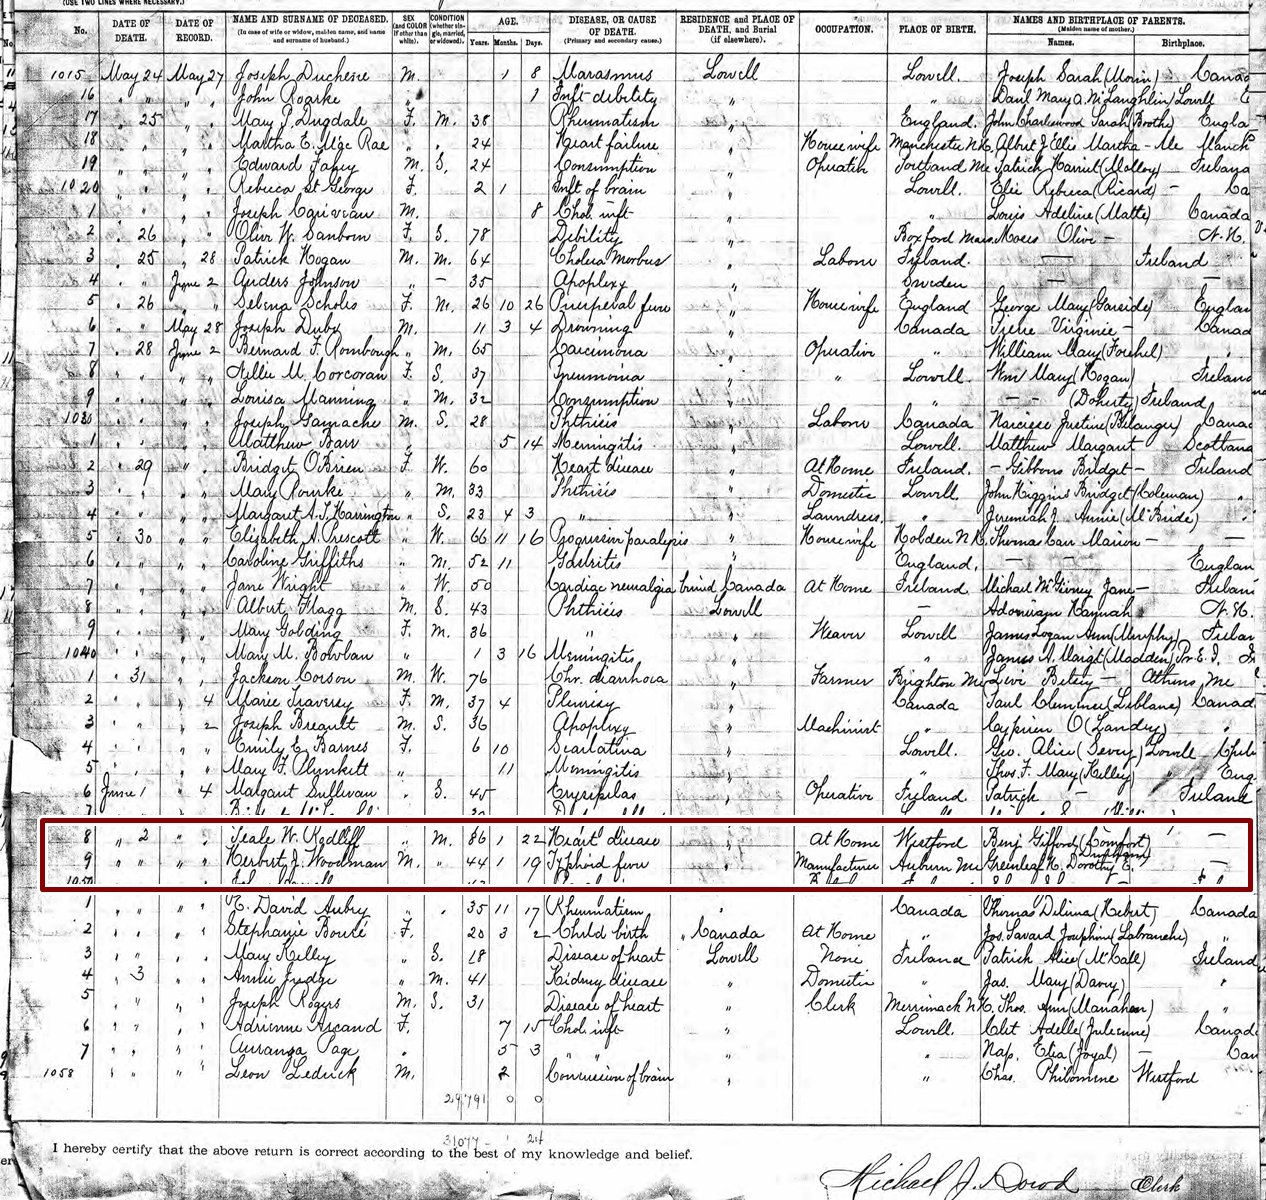 (USE TWO LINES WHERE NECESSARY.)
No. DATE OF DEATH. DATE OF RECORD. NAME AND SURNAME OF DECEASED. (In case of wife or widow, maiden name, and name and surname of husband.) SEX (and COLOR if other than white). CONDITION (whether single, married, or widowed). AGE. Years. Months. Days. DISEASE, OR CAUSE OF DEATH. (Primary and secondary cause.) RESIDENCE and PLACE OF DEATH, and Burial (if elsewhere). OCCUPATION. PLACE OF BIRTH. NAMES AND BIRTHPLACE OF PARENTS. (Maiden name of mother.) Names. Birthplace.
1015 May 24 May 27 Joseph Duchene M. 1 8 Marasmus Lowell Lowell. Joseph Sarah (Morin) Canad
16 " " " " John Roarke " 1 Inft debility " " Danl Mary A. McLaughlin Lowell
17 " 25 " " Mary P. Dugdale F. M. 38 Rheumatism " England. John Charleswood Sarah (Boothe) Engla
18 " " " " Martha E. McRae " " 24 Heart failure " Housewife Manchester N.H. Albert J Elis Martha - Me Manch
19 " " " " Edward Fahey M. S. 24 Consumption " Operative Portland Me Patrick Harriet (Malloy) Ireland
1020 " " " " Rebecca St George F. 2 1 Inft of brain " Lowell. Elie Rebecca (Ricard) - Ca
1 " " " " Joseph M. 8 Chol. inft " " Louis Adeline (Matte) Canada
2 " 26 " " Olive W. Sanborn F. S. 78 Debility " Boxford Mass. Moses Olive - N.H.
3 " 25 " 28 Patrick Hogan M. M. 64 Cholera Morbus " Laborer Ireland. — Ireland
4 " " June 2 Anders Johnson " — 35 Apoplexy " Sweden — —
5 " 26 " " Selma Scholes F. M. 26 10 26 Puerperal fever " Housewife England George Mary (Garside) Englan
6 " " May 28 Joseph Duby M. 11 3 4 Drowning " Canada Irene Virginie - Canad
7 " 28 June 2 Bernard F. Rombough " M. 65 Carcinoma " Operative " William Mary
8 " " " " Nellie M. Corcoran F. S. 37 Pneumonia " " Lowell. Wm Mary (Hogan) Ireland
9 " " " " Louisa Manning " M. 32 Consumption " " - - (Doherty) Ireland
1030 " " " " Joseph Gamache M. S. 28 Phthisis " Laborer Canada Narcisse Justine (Belanger) Canad
1 " " " " Matthew Barr " 5 14 Meningitis " Lowell. Matthew Margaret Scotland
2 " 29 " " Bridget O'Brien F. W. 60 Heart disease " At Home Ireland. - Gibbons Bridget - Ireland
3 " " " " Mary Rourke " M. 33 Phthisis " Domestic Lowell. John Higgins Bridget (Coleman) "
4 " " " " Margaret A. T. Harrington " S. 23 4 3 " " Laundress " Jeremiah J. Annie (McBride) "
5 " 30 " " Elizabeth A. Prescott " W. 66 11 16 Progressive paralysis " Housewife Holden N.H. Thomas Carr Marion - —
6 " " " " Caroline Griffiths " M. 52 11 Gastritis " England. — — Englan
7 " " " " Jane Wright " W. 50 Cardiac neuralgia buried Canada At Home Ireland. Michael Jane - Irelan
8 " " " " Albert Flagg M. S. 43 Phthisis Lowell — Adoniram Hannah N.H.
9 " " " " Mary Golding F. M. 36 " " Weaver Lowell James Logan Ann (Murphy) Irelan
1040 " " " " Mary M. Bowlan " 1 3 16 Meningitis " " James A. Margt (Madden) P.E.I.
1 " 31 " " Jackson Corson M. W. 76 Chr. diarrhoea " Farmer Brighton Me Levi Betsey - Athens, Me
2 " " " 4 Marie Traversy F. M. 37 4 Pleurisy " Canada Paul Clemence (Leblanc) Canad
3 " " " 2 Joseph Breault M. S. 36 Apoplexy " Machinist " Cyprien O (Landry) "
4 " " " " Emily E. Barnes F. 6 10 Scarlatina " Lowell. Geo. Alice Lowell
5 " " " " Mary F. Plunkett " 11 Meningitis " " Thos. F. Mary (Kelley) " Eng.
6 June 1 " 4 Margaret Sullivan " S. 45 Erysipelas " Operative Ireland. Patrick - Ireland
8 " 2 " " Seale W. Redliff " M. 86 1 22 Heart disease " At Home Westford Benj Gifford (Comfort) —
9 " " " " Herbert J. Woodman M. " 44 1 19 Typhoid fever " Manufacturer Auburn Me Greenleaf K. Dorothy E. —
1050
1 " " " " H. David Aubry " " 35 11 17 Rheumatism " Canada Thomas Delima (Hebert) Canada
2 " " " " Stephanie Bouré F. " 20 3 2 Child birth " Canada At Home " Jos. Savard Josephine (Labranche) "
3 " " " " Mary Kelley " S. 18 Disease of heart Lowell None Ireland Patrick Alice (McCall) Ireland
4 " 3 " " Annie Judge " M. 41 Kidney disease " Domestic " Jas. Mary (Davey) "
5 " " " " Joseph Rogers M. S. 31 Disease of heart " Clerk Merrimack N.H. Thos. Ann (Manahan) "
6 " " " " Adrienne Arcand F. 7 15 Chol. inft " Lowell. Clet Adelle (Julienne) Canad
7 " " " " Auranga Page " 5 3 " " " " Nap. Elia (Joyal) - Can
1058 " " " " Leon Leduck M. 2 Concussion of brain " " Chas. Philomine Westford
29,791 0 0
31077 - ' 24
I hereby certify that the above return is correct according to the best of my knowledge and belief.
Michael J. Dowd Clerk